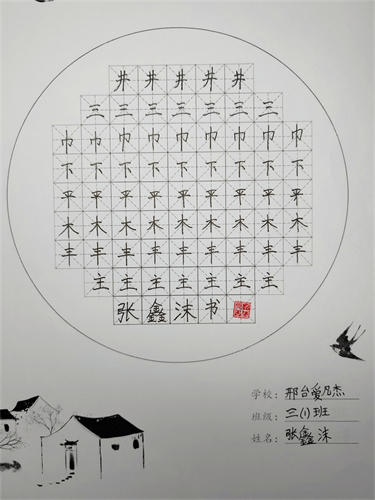 井井井井井
三三三三三三三
巾巾巾巾巾巾巾巾巾
下下下下下下下下下
平平平平平平平平平
木木木木木木木木木
丰丰丰丰丰丰丰丰丰
主主主主主主主
张鑫沫书
学校：邢台爱凡杰
班级：三(1)班
姓名：张鑫沫